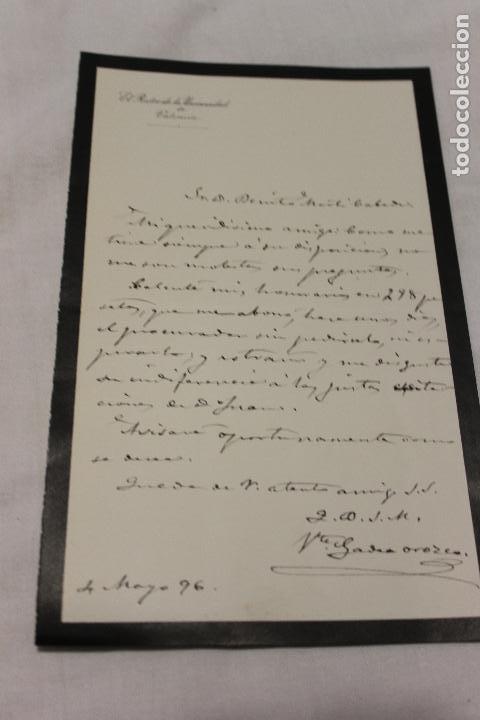 El Rector de la Universidad
de
Valencia
Sr. D. Benito
Mi queridísimo amigo: Como me
tiene siempre a su disposicion, no
me son molestas sus preguntas.
Calculé mis honorarios en 248 pe
setas, que me abonó, hace unos dias,
el procurador sin pedirselo, ni es-
perarlo; y estraño y me disgusta
su indiferencia à las justas
ciones de D. Juan.
Avisaré oportunamente como
se desea.
Queda de V. atento amigo S.S.
Q.B.S.M.
Vte. Gadea Orozco.
4 Mayo 96.
todocoleccion